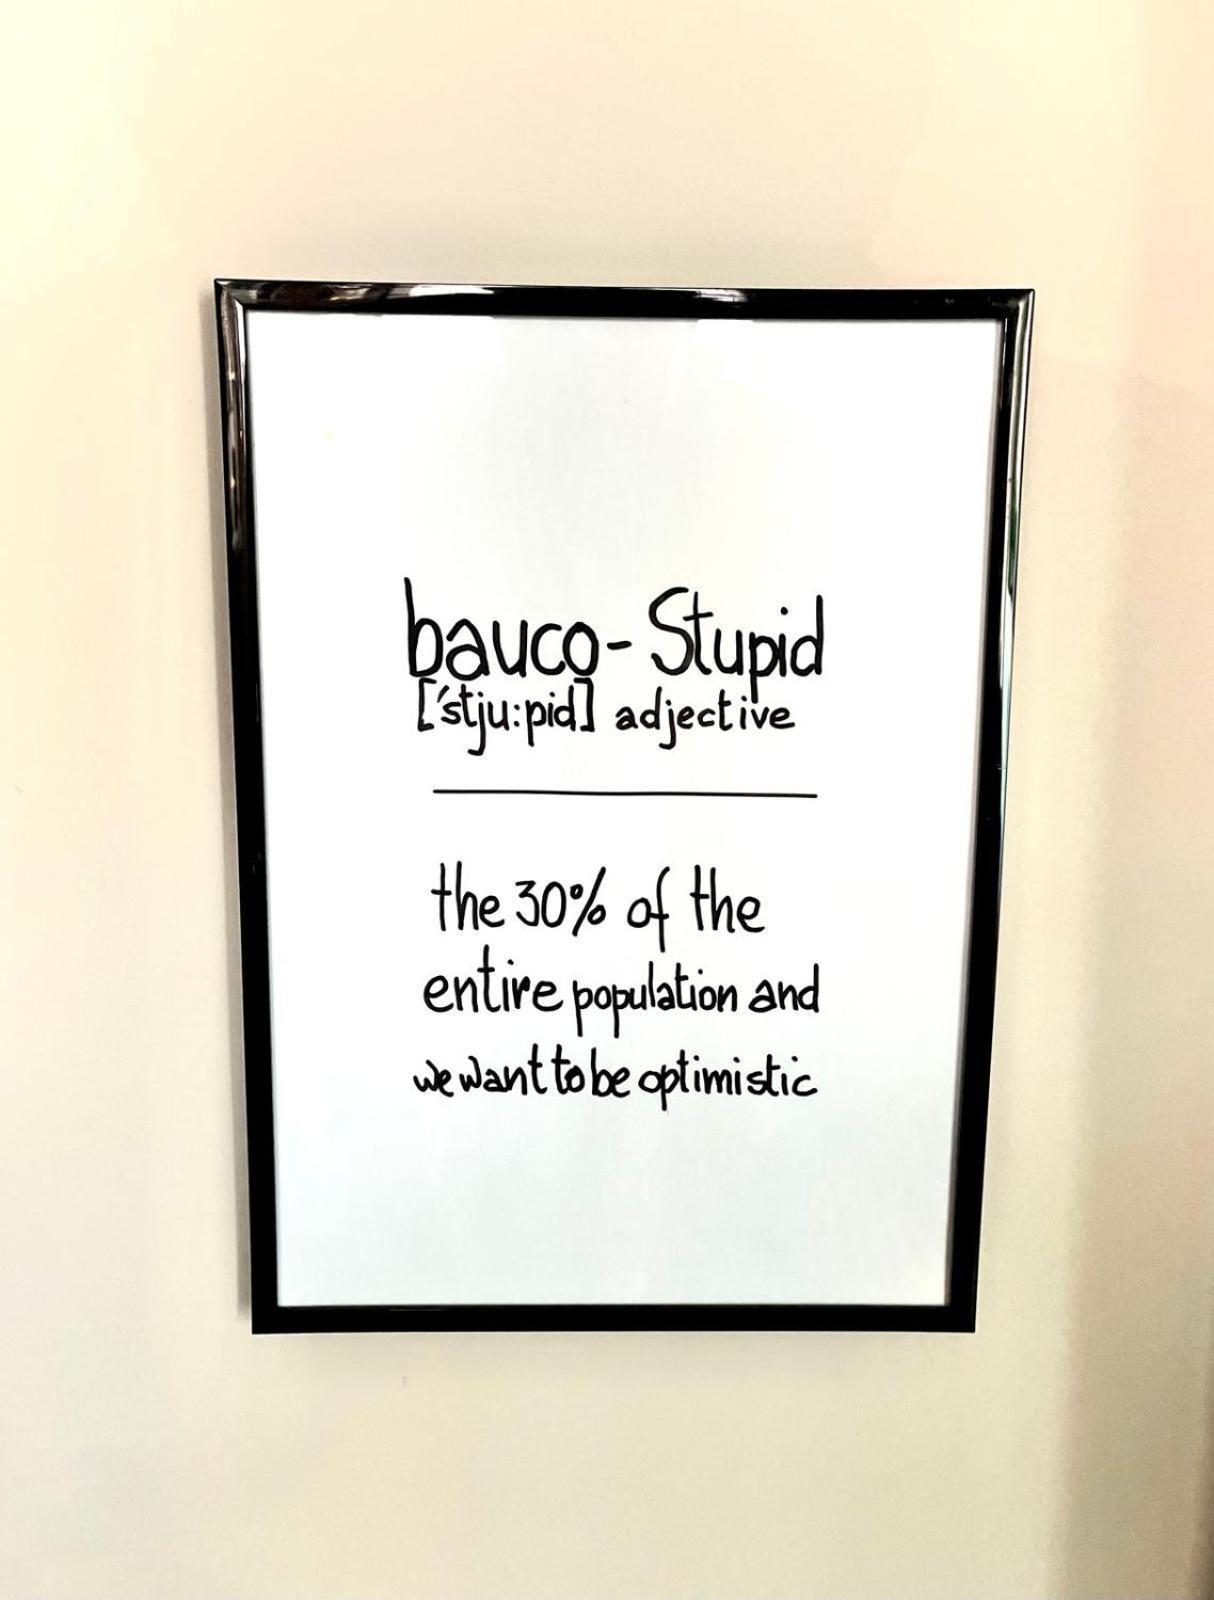 bauco - Stupid
['stju:pid] adjective
the 30% of the
entire population and
we want to be optimistic